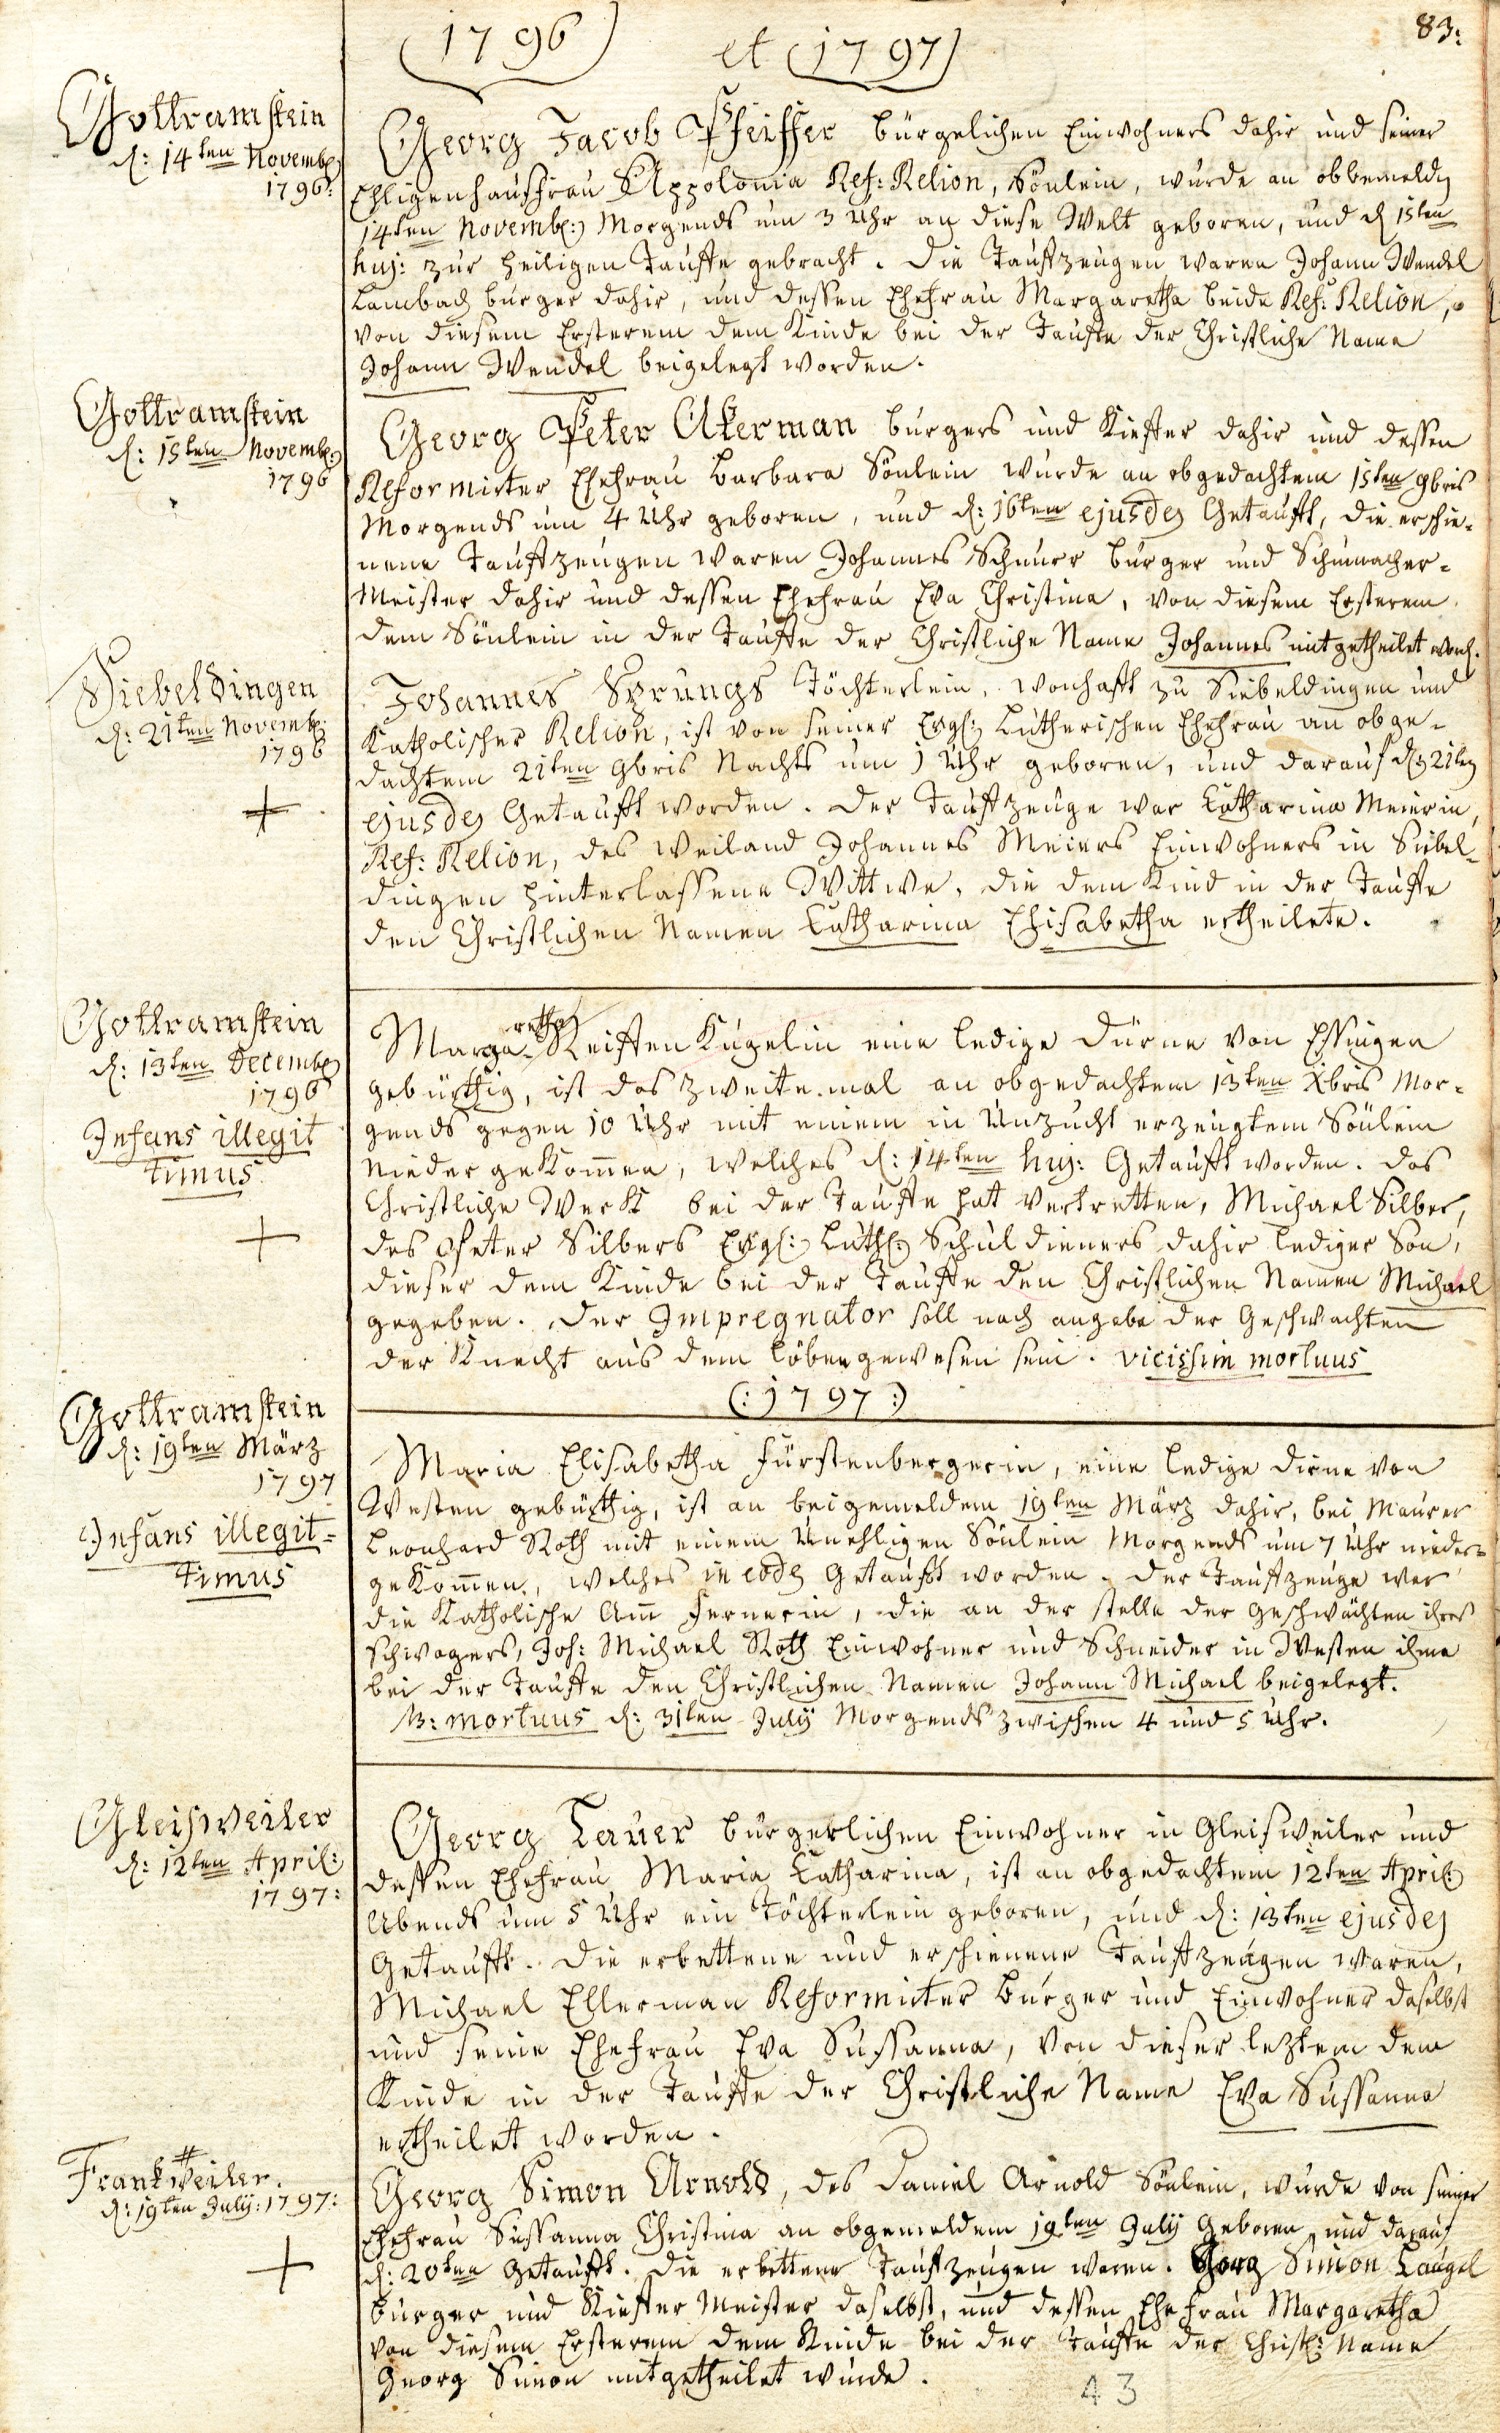 83:
1796 et 1797
Gottramstein
d: 14ten Novemb:
1796:
Georg Jacob Pfeiffer bürgelichen Einwohners dahir und seiner
Ehligenhausfrau Appolonia Ref: Relion, Sönlein, wurde an obbemeldt
14ten Novemb: Morgends um 3 Uhr an diese Welt geboren, und d 15ten
huj: zur heiligen Tauffe gebracht. Die Taufzeugen waren Johann Wendel
Lambach burger dahir, und dessen Ehefrau Margaretha beide Ref: Relion,
von diesem Ersterem dem Kinde bei der Tauffe der Christliche Name
Johann Wendel beigelegt worden.
Gottramstein
d: 15ten Novemb:
1796
Georg Peter Akerman burgers und Kieffer dahir und dessen
Reformirter Ehefrau Barbara Sönlein wurde an obgedachtem 15ten 9bris
Morgends um 4 Uhr geboren, und d: 16ten ejusdej Getaufft, die erschie-
nene Taufzeugen waren Johannes Schnurr burger und Schumacher-
Meister dahir und dessen Ehefrau Eva Christina, von diesem Ersterem
dem Sönlein in der Tauffe der Christliche Name Johannes mitgetheilet word.
Siebeldingen
d: 21ten Novemb:
1796
+
Johannes Sprungs Töchterlein, wonhafft zu Siebeldingen und
Katholischer Relion, ist von seiner Evgl: Lutherischen Ehefrau an obge-
dachtem 21ten 9bris Nachts um 1 Uhr geboren, und darauf d: 21ten
ejusdej Getaufft worden. Der Taufzeuge war Catharina Meierin,
Ref: Relion, des weiland Johannes Meiers Einwohners in Siebel-
dingen hinterlassene Wittwe, die dem Kind in der Tauffe
den Christlichen Namen Catharina Elisabetha ertheilete.
Gottramstein
d: 13ten Decemb:
1796
Infans illegit
timus
+
Margaretha Reiffen Kugelin eine ledige Dürne von Essingen
gebürthig, ist das zweite mal an obgedachtem 13ten Xbris Mor-
gends gegen 10 Uhr mit einem in Unzucht erzeugtem Sönlein
nieder gekommen, welches d: 14ten huj: Getaufft worden. Das
Christliche Werk bei der Tauffe hat vertretten, Michael Silber,
des Peter Silbers Evgl: Luth: Schuldieners dahir lediger Son,
dieser dem Kinde bei der Tauffe den Christlichen Namen Michael
gegeben. Der Impregnator soll nach angabe der Geschwachten
der Knecht aus dem Löben gewesen sein. vicissim mortuus
(:1797:)
Gottramstein
d: 19ten März
1797
Infans illegit-
timus
Maria Elisabetha Fürstenbergerin, eine ledige Dirne von
Westen gebürthig, ist an beigemeldem 19ten März dahir, bei Maurer
Leonhard Roth mit einem Unehligen Sönlein Morgends um 7 Uhr nieder-
gekommen, welches in eodej Getaufft worden. Der Taufzeuge war
die Katholische Ann Fernerin, die an der stelle der Geschwächten ihres
schwagers, Joh: Michael Roth Einwohner und Schneider in Westen ihme
bei der Tauffe den Christlichen Namen Johann Michael beigelegt.
NB: mortuus d: 31ten July Morgends zwischen 4 und 5 Uhr.
Gleisweiler
d: 12ten April:
1797:
Georg Lauer bürgerlichen Einwohner in Gleisweiler und
dessen Ehefrau Maria Catharina, ist an obgedachtem 12ten April:
Abends um 5 Uhr ein Töchterlein geboren, und d: 13ten ejusdej
Getaufft. Die erbettene und erschienene Taufzeugen waren,
Michael Ellerman Reformirter Burger und Einwohner daselbst
und seine Ehefrau Eva Sussanna, von dieser leztem dem
Kinde in der Tauffe der Christliche Name Eva Sussanna
ertheilet worden.
#
Frankweiler.
d: 19ten July: 1797:
+
Georg Simon Arnold, des Daniel Arnold Sönlein, wurde von seiner
Ehefrau Sussanna Christina an obgemeldem 19ten July Geboren, und darauf
d: 20ten Getaufft. Die erbettene Taufzeugen waren. Georg Simon Laugel
burger und Kieffer Meister daselbst, und dessen Ehefrau Margaretha
von diesem Ersterem dem Kinde bei der Tauffe der Christl: Name
Georg Simon mitgetheilet wurde.
43